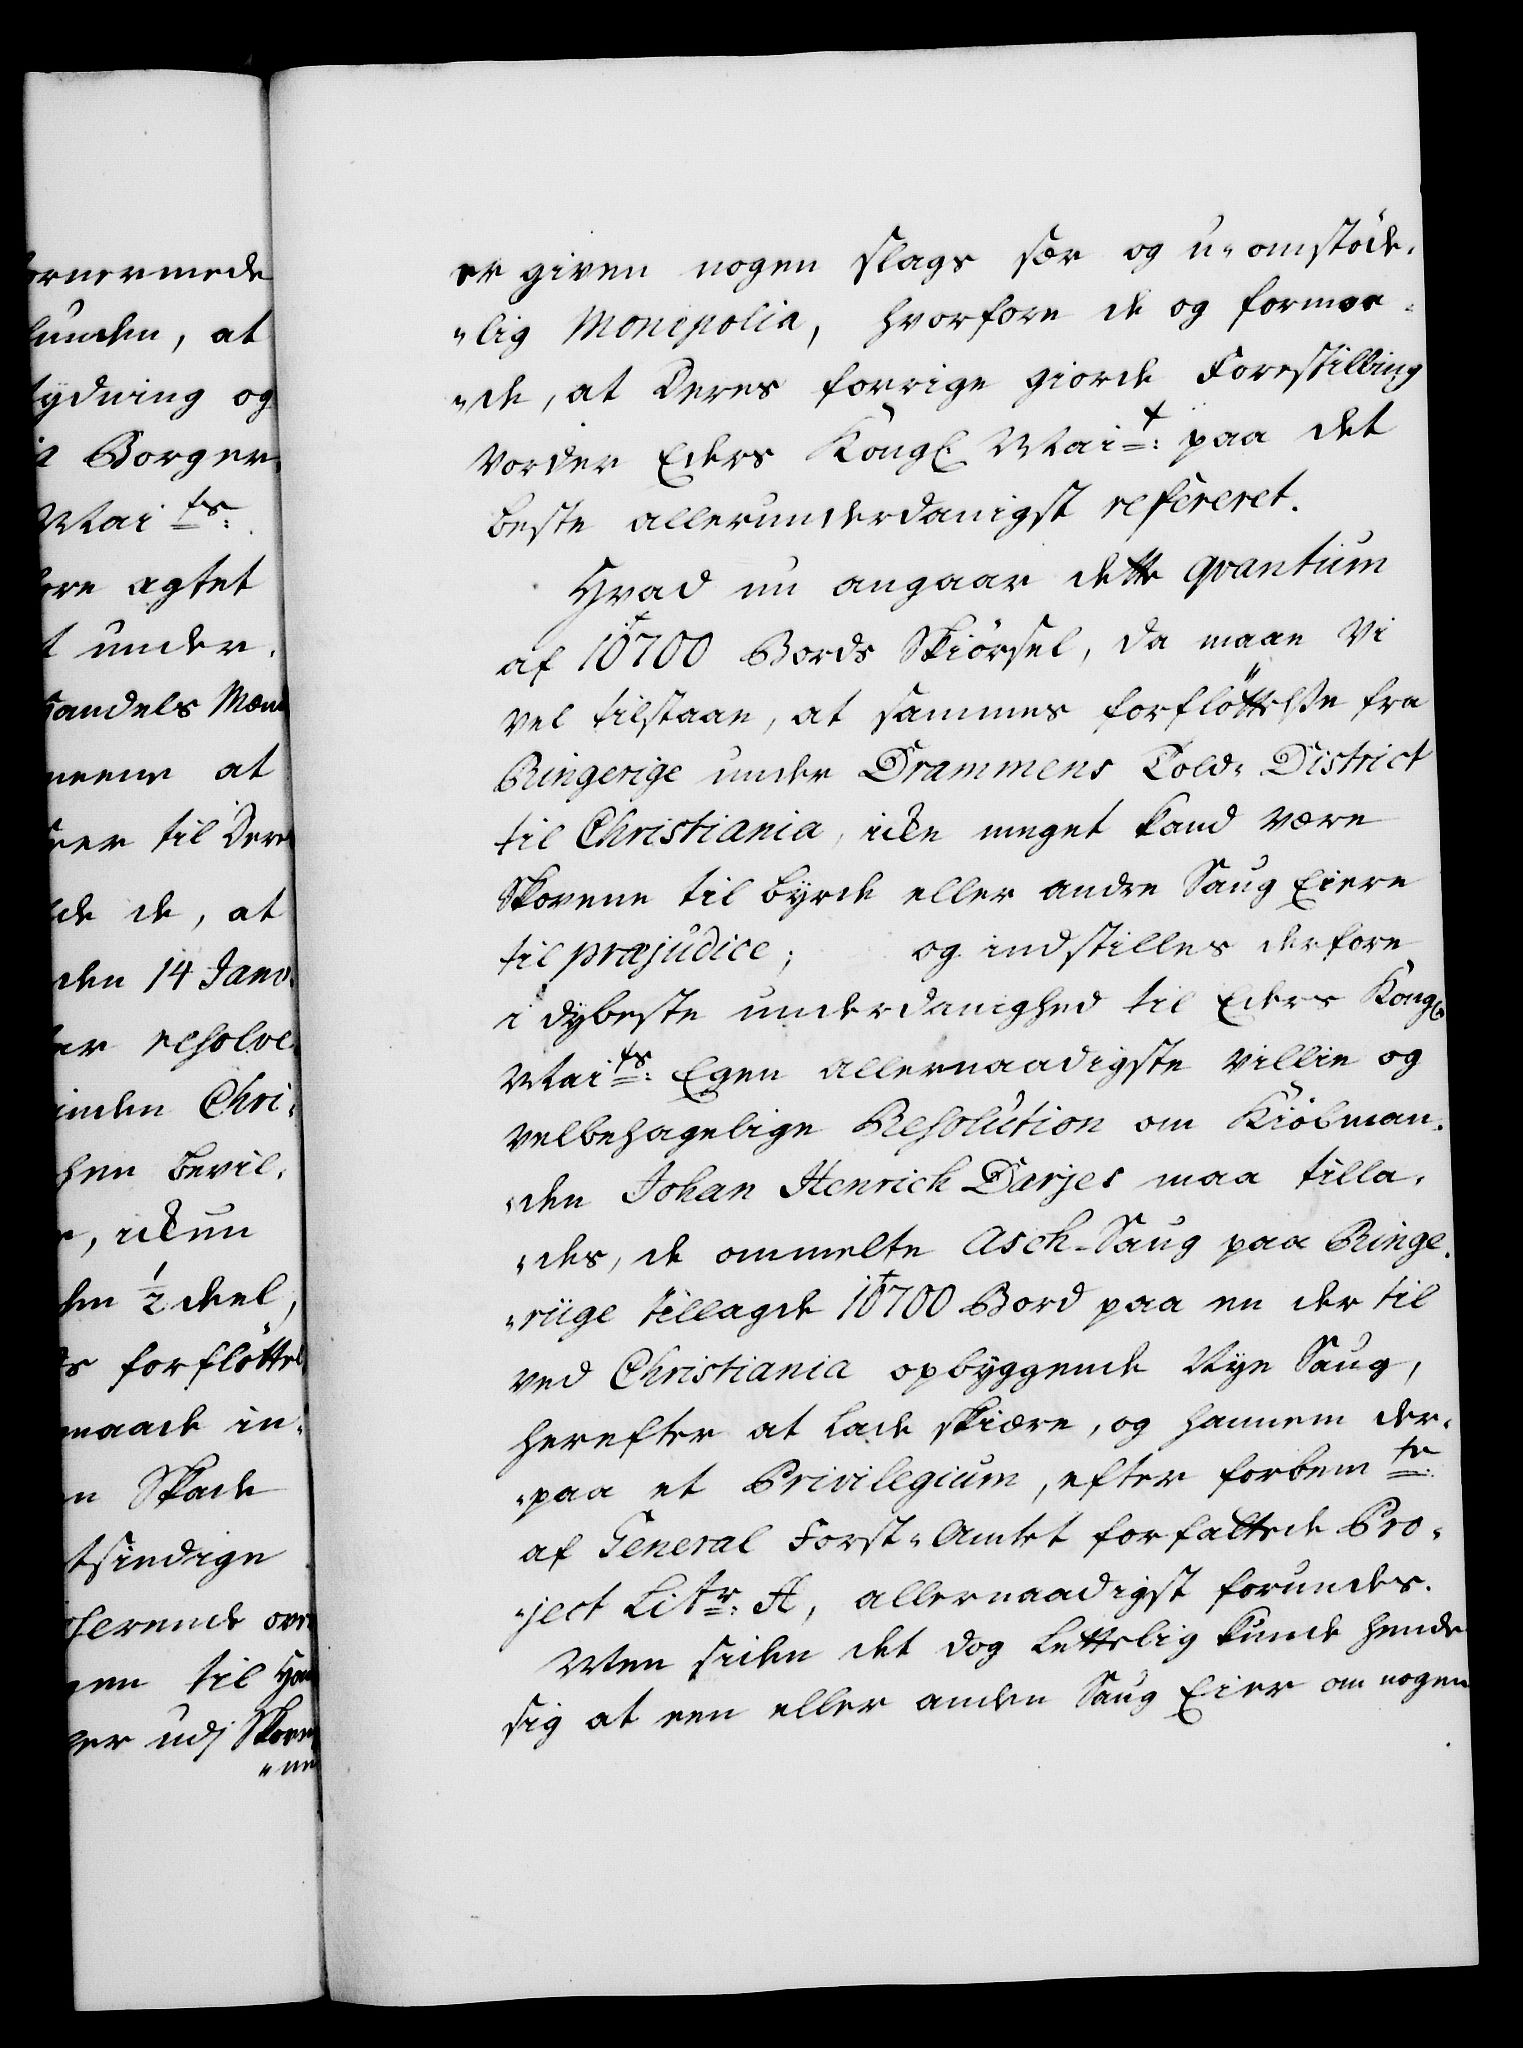 ornermede
lunden, at
tydning og
a Borger
Mai ts:
ere agtet
t under,
Handels Mænd
meene at
seer til Dere
lde de, at
den 14 Janv:
er resolve
inden Chri-
hen bevil-
e, ickun
den 1/2 deel,
ts forfløttel
maade in-
en Skade
tsindige
fferende ove
gen til Han
er udj Skove
"ne
er given nogen slags sær og u-omstøde-
"lig Monopolia, hvorfore de og formo-
"de, at Deres forrige giorde Forestilling
vorder Eders Kongl. Mait: paa det
beste allerunderdanigst refereret.
Hvad nu angaar dette qvantum
af 10700 Bords Skiørsel, da maae Vi
vel tilstaae, at sammes forfløttelße fra
Ringerige under Drammens Told-District
til Christiania, icke meget kand være
Skovene til byrde eller andre Saug Eiere
til præjudice; og indstilles derfore
i dybeste underdanighed til Eders Kongl
Maits: Egen allernaadigste villie og
velbehagelige Resolution om Kiøbman-
"den Johan Henrich Darjes maa tilla-
"des, de ommelte Asch-Saug paa Ringe-
"riige tillagde 10700 Bord paa en der til
ved Christiania opbyggende Nye Saug,
herefter at lade skiære, og hannem der-
"paa et Privilegium, efter forbemte:
af General Forst-Amtet forfattede Pro-
"ject Litr: A, allernaadigst forundes.
Men siden det dog lettelig kunde hende
sig at een eller anden Saug Eier om nogen